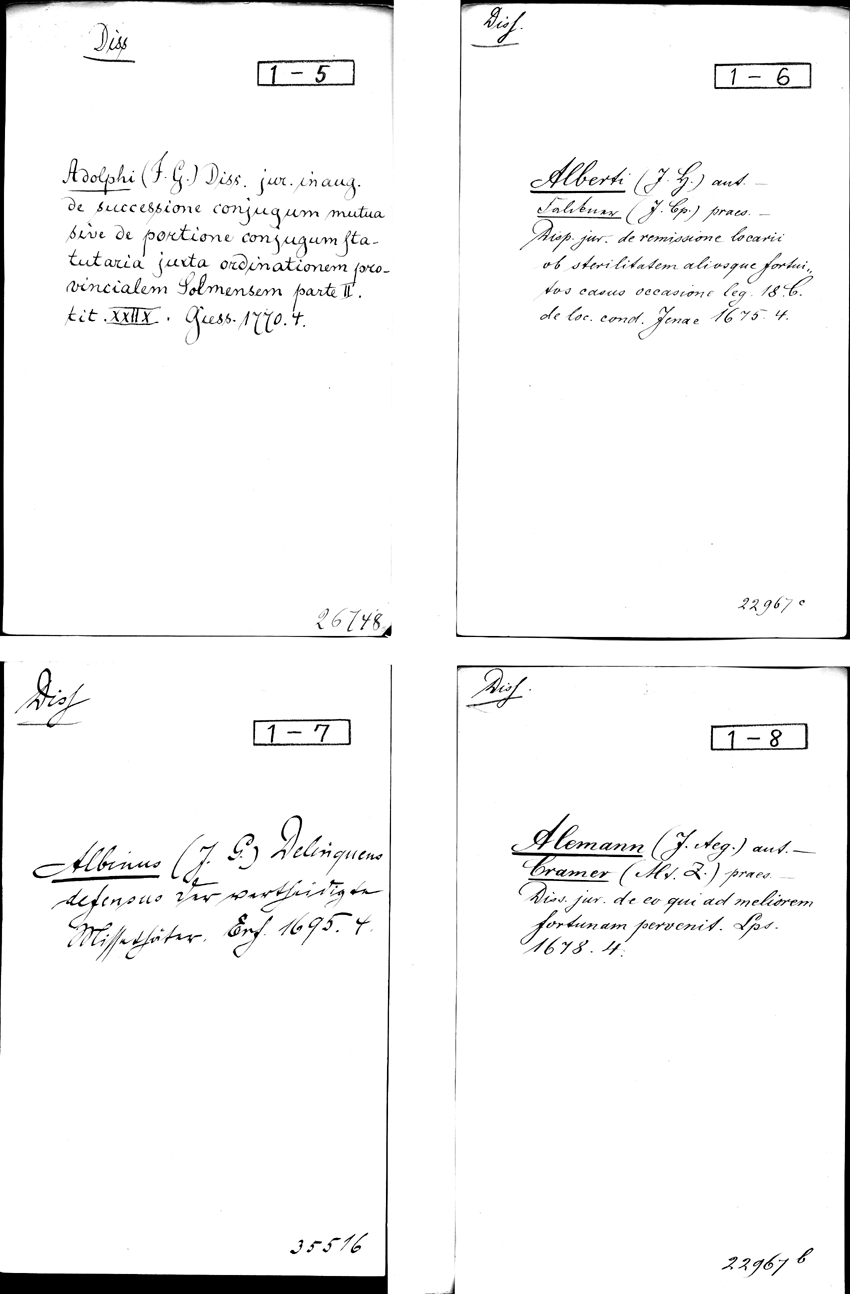 Diss
1 - 5
Adolphi (F. G.) Diss. jur. inaug.
de successione conjugum mutua
sive de portione conjugum sta-
tutaria juxta ordinationem pro-
vincialem Solmensem parte II.
tit. XXIIX. Giess. 1770. 4.
26748
Diss.
1 - 6
Alberti (J. H.) aut. —
Falckner (J. Cp.) praes. —
Disp. jur. de remissione locarii
ob sterilitatem aliosque fortui-
tos casus occasione leg. 18. C.
de loc. cond. Jenae 1675. 4.
22967 c
Diss
1 - 7
Albinus (J. G.) Delinquens
defensus der vertheidigte
Missethäter. Erf. 1695. 4.
35516
Diss.
1 - 8
Alemann (J. Aeg.) aut. —
Cramer (Mt. Z.) praes. —
Diss. jur. de eo qui ad meliorem
fortunam pervenit. Lps.
1678. 4.
22967 b